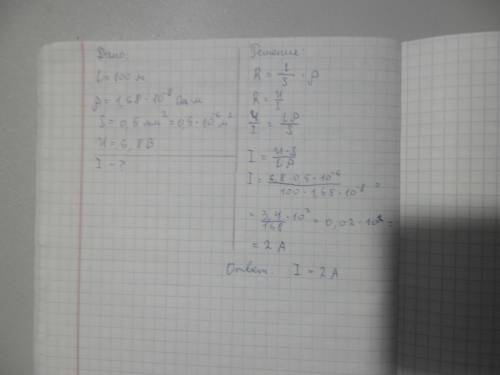 Дано:
l = 100 м
ρ = 1,68 · 10⁻⁸ Ом·м
S = 0,5 мм² = 0,5 · 10⁻⁶ м²
U = 6,8 В
I - ?
Решение:
R = l/S · ρ
R = U/I
U/I = lρ/S
I = U·S/lρ
I = 6,8 · 0,5 · 10⁻⁶/100 · 1,68 · 10⁻⁸ =
= 3,4/168 · 10² = 0,02 · 10² =
= 2 А
Ответ: I = 2 А